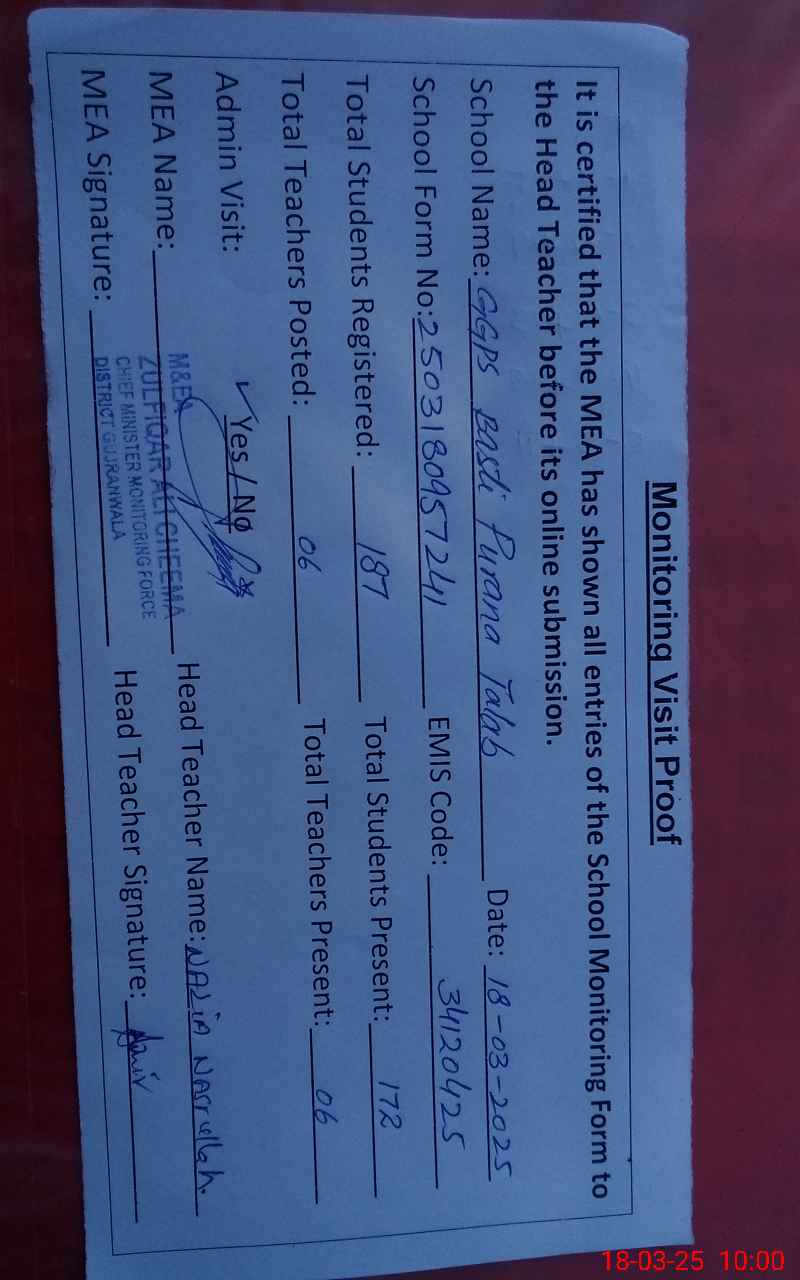 Monitoring Visit Proof
It is certified that the MEA has shown all entries of the School Monitoring Form to
the Head Teacher before its online submission.
School Name: GGPS Basti Purana Talab Date: 18-03-2025
School Form No: 2503180957241 EMIS Code: 34120425
Total Students Registered: 187 Total Students Present: 172
Total Teachers Posted: 06 Total Teachers Present: 06
Admin Visit: ✓ Yes / No
MEA Name: Head Teacher Name: NAZIA NASrullah.
M&EA
ZULFIQAR ALI CHEEMA
CHIEF MINISTER MONITORING FORCE
DISTRICT GUJRANWALA
MEA Signature: Head Teacher Signature:
18-03-25 10:00